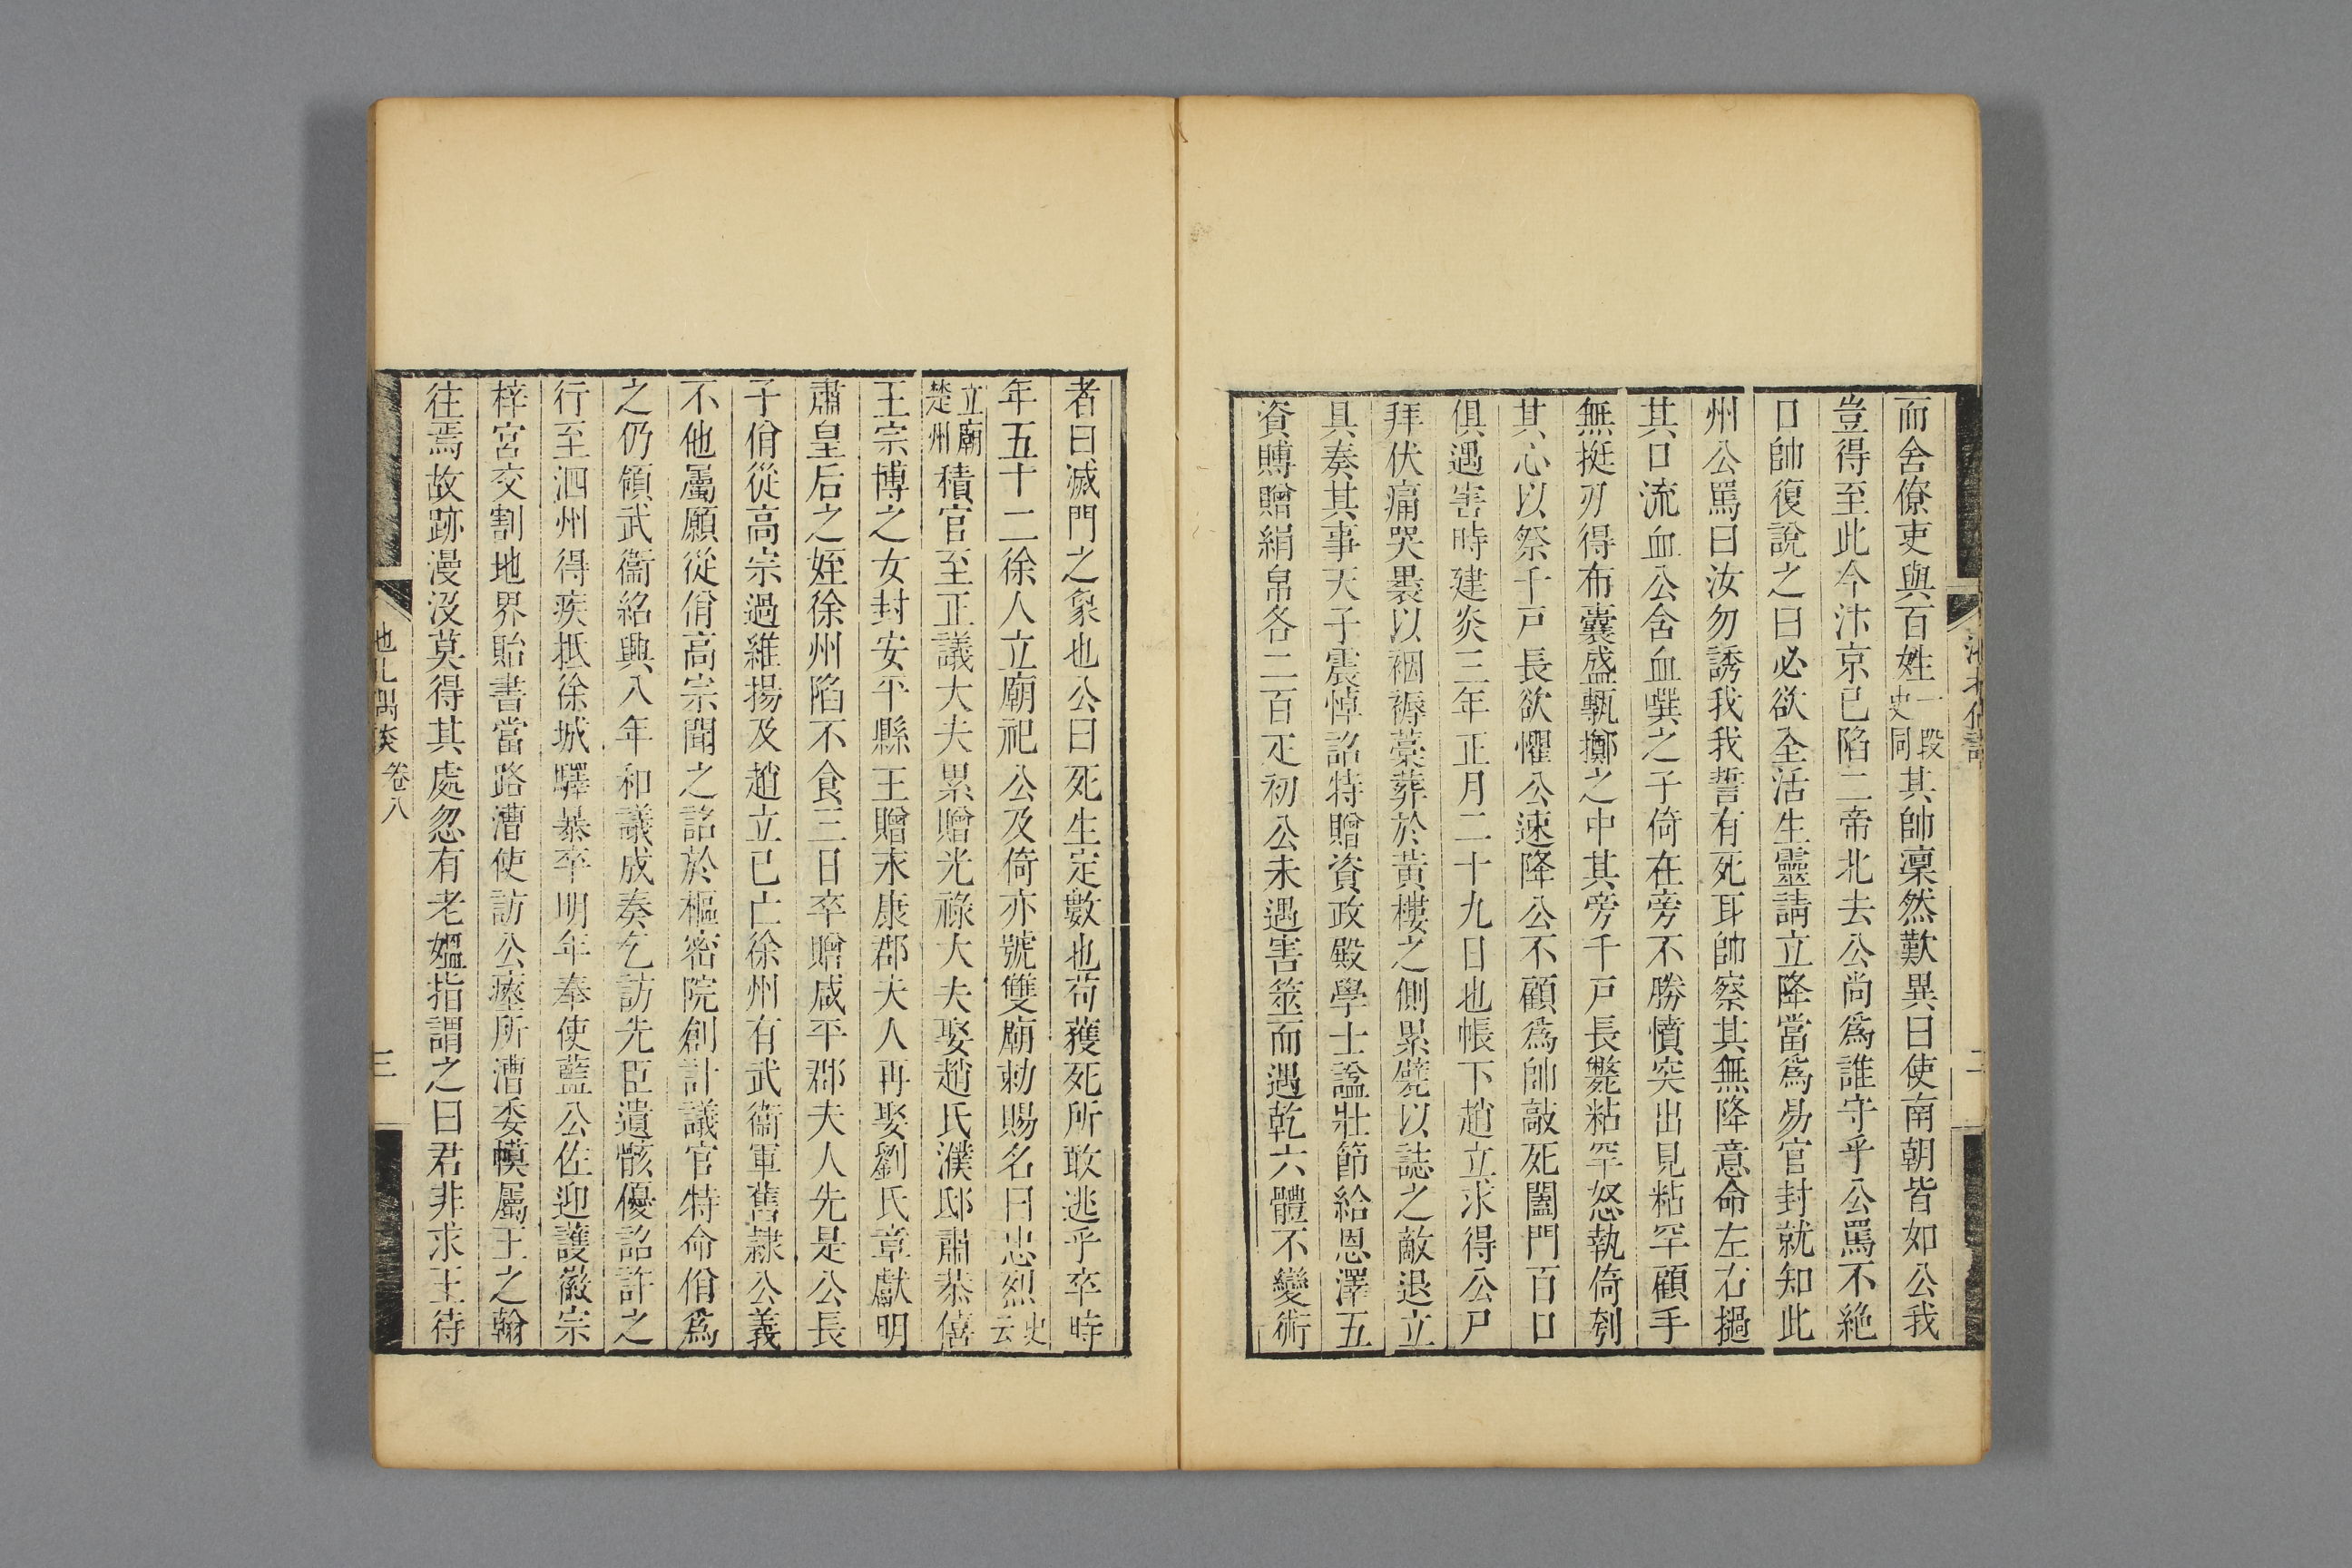 而舍僚吏與百姓一段史同其帥凜然歎異曰使南朝皆如公我
豈得至此今汴京已陷二帝北去公尚為誰守乎公罵不絶
口帥復說之曰必欲全活生靈請立降當為易官封就知此
州公罵曰汝勿誘我我誓有死耳帥察其無降意命左右撾
其口流血公含血噀之子倚在旁不勝憤突出見粘罕顧手
無挺刃得布囊盛甎擲之中其旁千戸長斃粘罕怒執倚刳
其心以祭千戸長欲懼公速降公不顧為帥敲死闔門百口
俱遇害時建炎三年正月二十九日也帳下趙立求得公尸
拜伏痛哭褁以裀褥藁葬於黃樓之側累甓以誌之敵退立
具奏其事天子震悼詔特贈資政殿學士諡壯節給恩澤五
資賻贈絹帛各二百疋初公未遇害筮而遇乾六體不變術
者曰滅門之象也公曰死生定數也苟獲死所敢逃乎卒時
年五十二徐人立廟祀公及倚亦號雙廟勅賜名曰忠烈史云
立廟楚州積官至正議大夫累贈光祿大夫娶趙氏濮邸肅恭僖
王宗博之女封安平縣王贈永康郡夫人再娶劉氏章獻明
肅皇后之姪徐州陷不食三日卒贈咸平郡夫人先是公長
子佾從高宗過維揚及趙立已亡徐州有武衞軍舊隷公義
不他屬願從佾高宗聞之詔於樞密院創計議官特命佾為
之仍領武衞紹興八年和議成奏乞訪先臣遺骸優詔許之
行至泗州得疾抵徐城驛暴卒明年奉使藍公佐迎護徽宗
梓宮交割地界貽書當路漕使訪公瘞所漕委幙屬王之翰
往焉故跡漫沒莫得其處忽有老嫗指謂之曰君非求王待
池北偶談 卷八 三